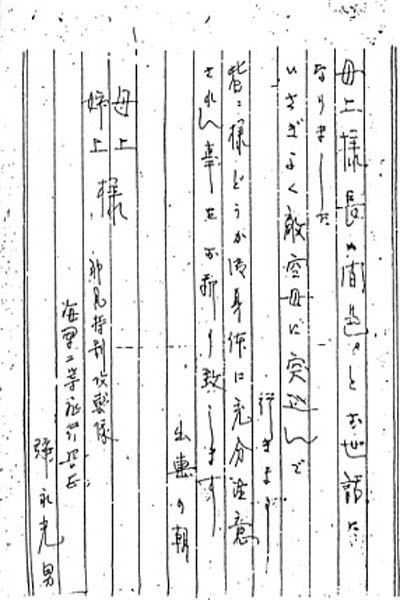 母上様長い間色々とお世話に
なりました
いさぎよく敵空母に突込んで
行きます
皆々様どうか御身体に充分注意
され幸をお祈り致します
出撃の朝
母上
姉上 様
神風特別攻撃隊
海軍二等飛行兵曹
光男